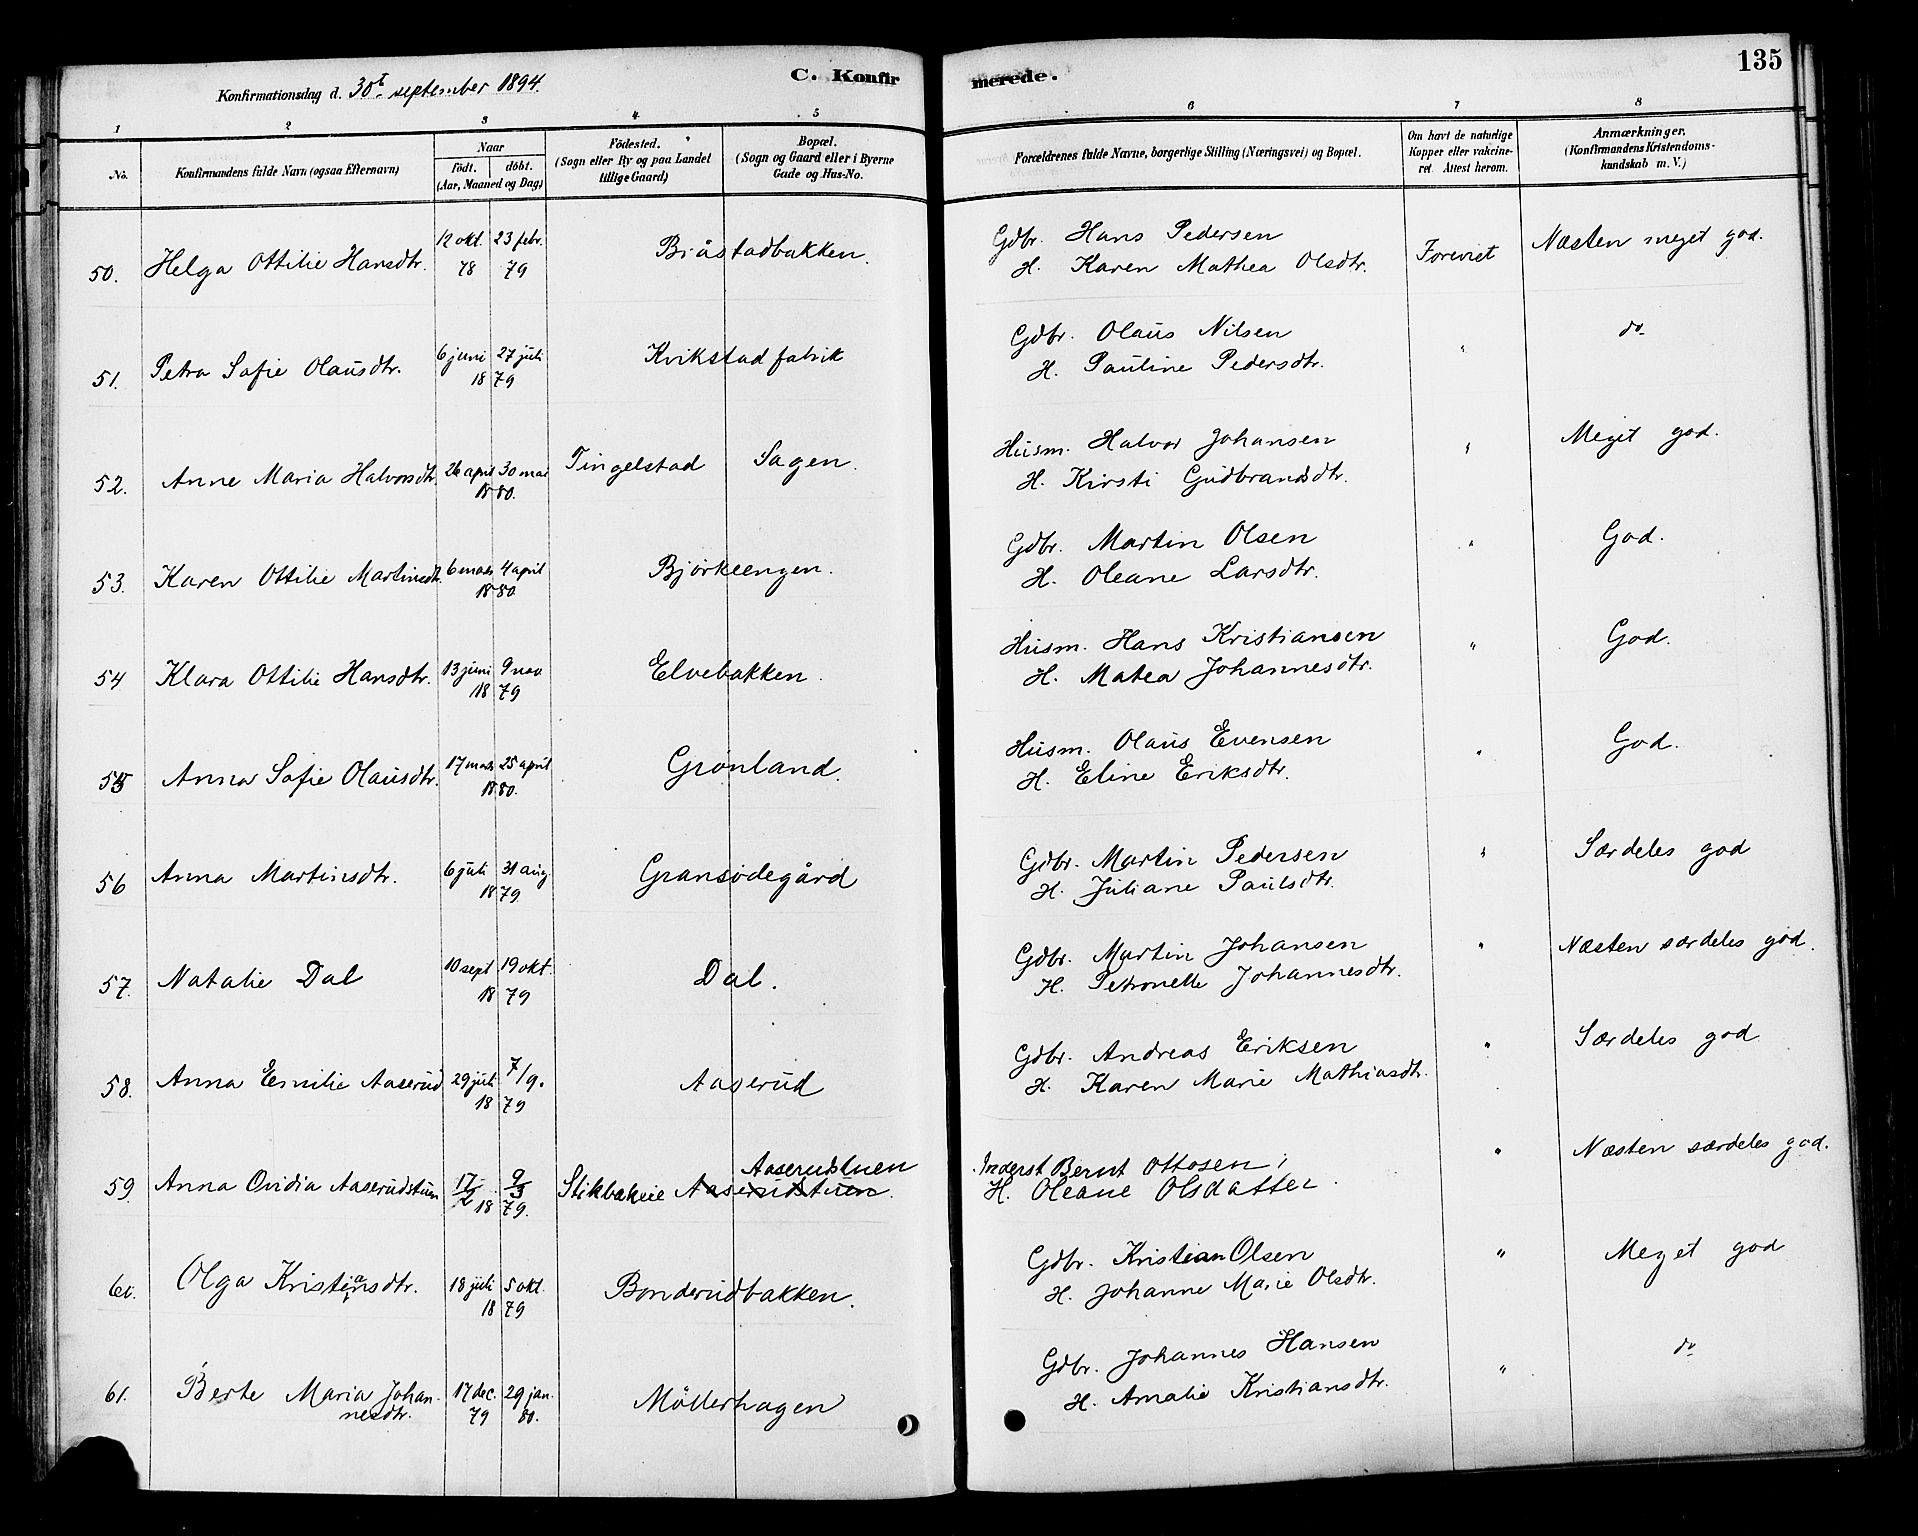 135
C. Konfir merede.
Konfirmationsdag d. 30t. september 1894.
1 2 3 4 5 6 7 8
No. Konfirmandens fulde Navn (ogsaa Efternavn) Naar Født. døbt. (Aar, Maaned og Dag) Fødested. (Sogn eller By og paa Landet tillige Gaard) Bopæl. (Sogn og Gaard eller i Byerne Gade og Hus-No.
Forældrenes fulde Navne, borgerlige Stilling (Næringsvei) og Bopæl. Om havt de naturlige Kopper eller vakcineret Attest herom. Anmærkninger, (Konfirmandens Kristendomskundskab m. V.)
50. Helga Ottilie Hansdtr. 12 okt. 78 23 febr. 79 Bråstadbakken. Gdbr. Hans Pedersen
H. Karen Mathea Olsdtr. Forevist Næsten meget god.
51. Petra Sofie Olausdtr. 6 juni 27 juli 18 79 Kvikstad fabrik Gdbr. Olaus Nilsen
H. Pauline Pedersdtr. " do
52. Anne Maria Halvorsdtr. 26 april 30 mai 18 80. Tingelstad Sagen. Husm. Halvor Johansen
H. Kirsti Gudbrandsdtr. " Meget god.
53. Karen Ottilie Martinsdtr. 6 mars 4 april 18 80 Bjørkeengen. Gdbr. Martin Olsen
H. Oleane Larsdtr. " God.
54 Klara Ottilie Hansdtr. 13 juni 9 nov 18 79 Elvebakken. Husm. Hans Kristiansen
H. Matea Johannesdtr. " God.
55 Anna Sofie Olausdtr. 17 mars 25 april 18 80. Grønland. Husm. Olaus Evensen
H. Eline Eriksdtr. " God.
56 Anna Martinsdtr. 6 juli 31 aug 18 79 Gransødegård Gdbr. Martin Pedersen
H. Juliane Paulsdtr. " Særdeles god
57. Natalie Dal 10 sept 19 okt. 18 79 Dal. Gdbr. Martin Johansen
H. Petronelle Johannesdtr. " Næsten særdeles god.
58. Anna Emilie Aaserud 29 juli 7/9. 18 79 Aaserud Gdbr. Andreas Eriksen
H. Karen Marie Mathiasdtr. " Særdeles god
59. Anna Ovidia Aaserudstuen 17/2 9/3 18 79. Stikbakeie Aaserudstuen Aaserudstuen. Inderst Bernt Ottosen,
H. Oleane Olsdatter. " Næsten særdeles god.
60. Olga Kristiansdtr. 18 juli 5 okt. 18 79 Bonderudbakken. Gdbr. Kristian Olsen
H. Johanne Marie Olsdtr. " Meget god
61. Berte Maria Johannesdtr. 17 dec. 79 29 jan. 80. Møllerhagen Gdbr. Johannes Hansen
H. Amalie Kristiansdtr. " do